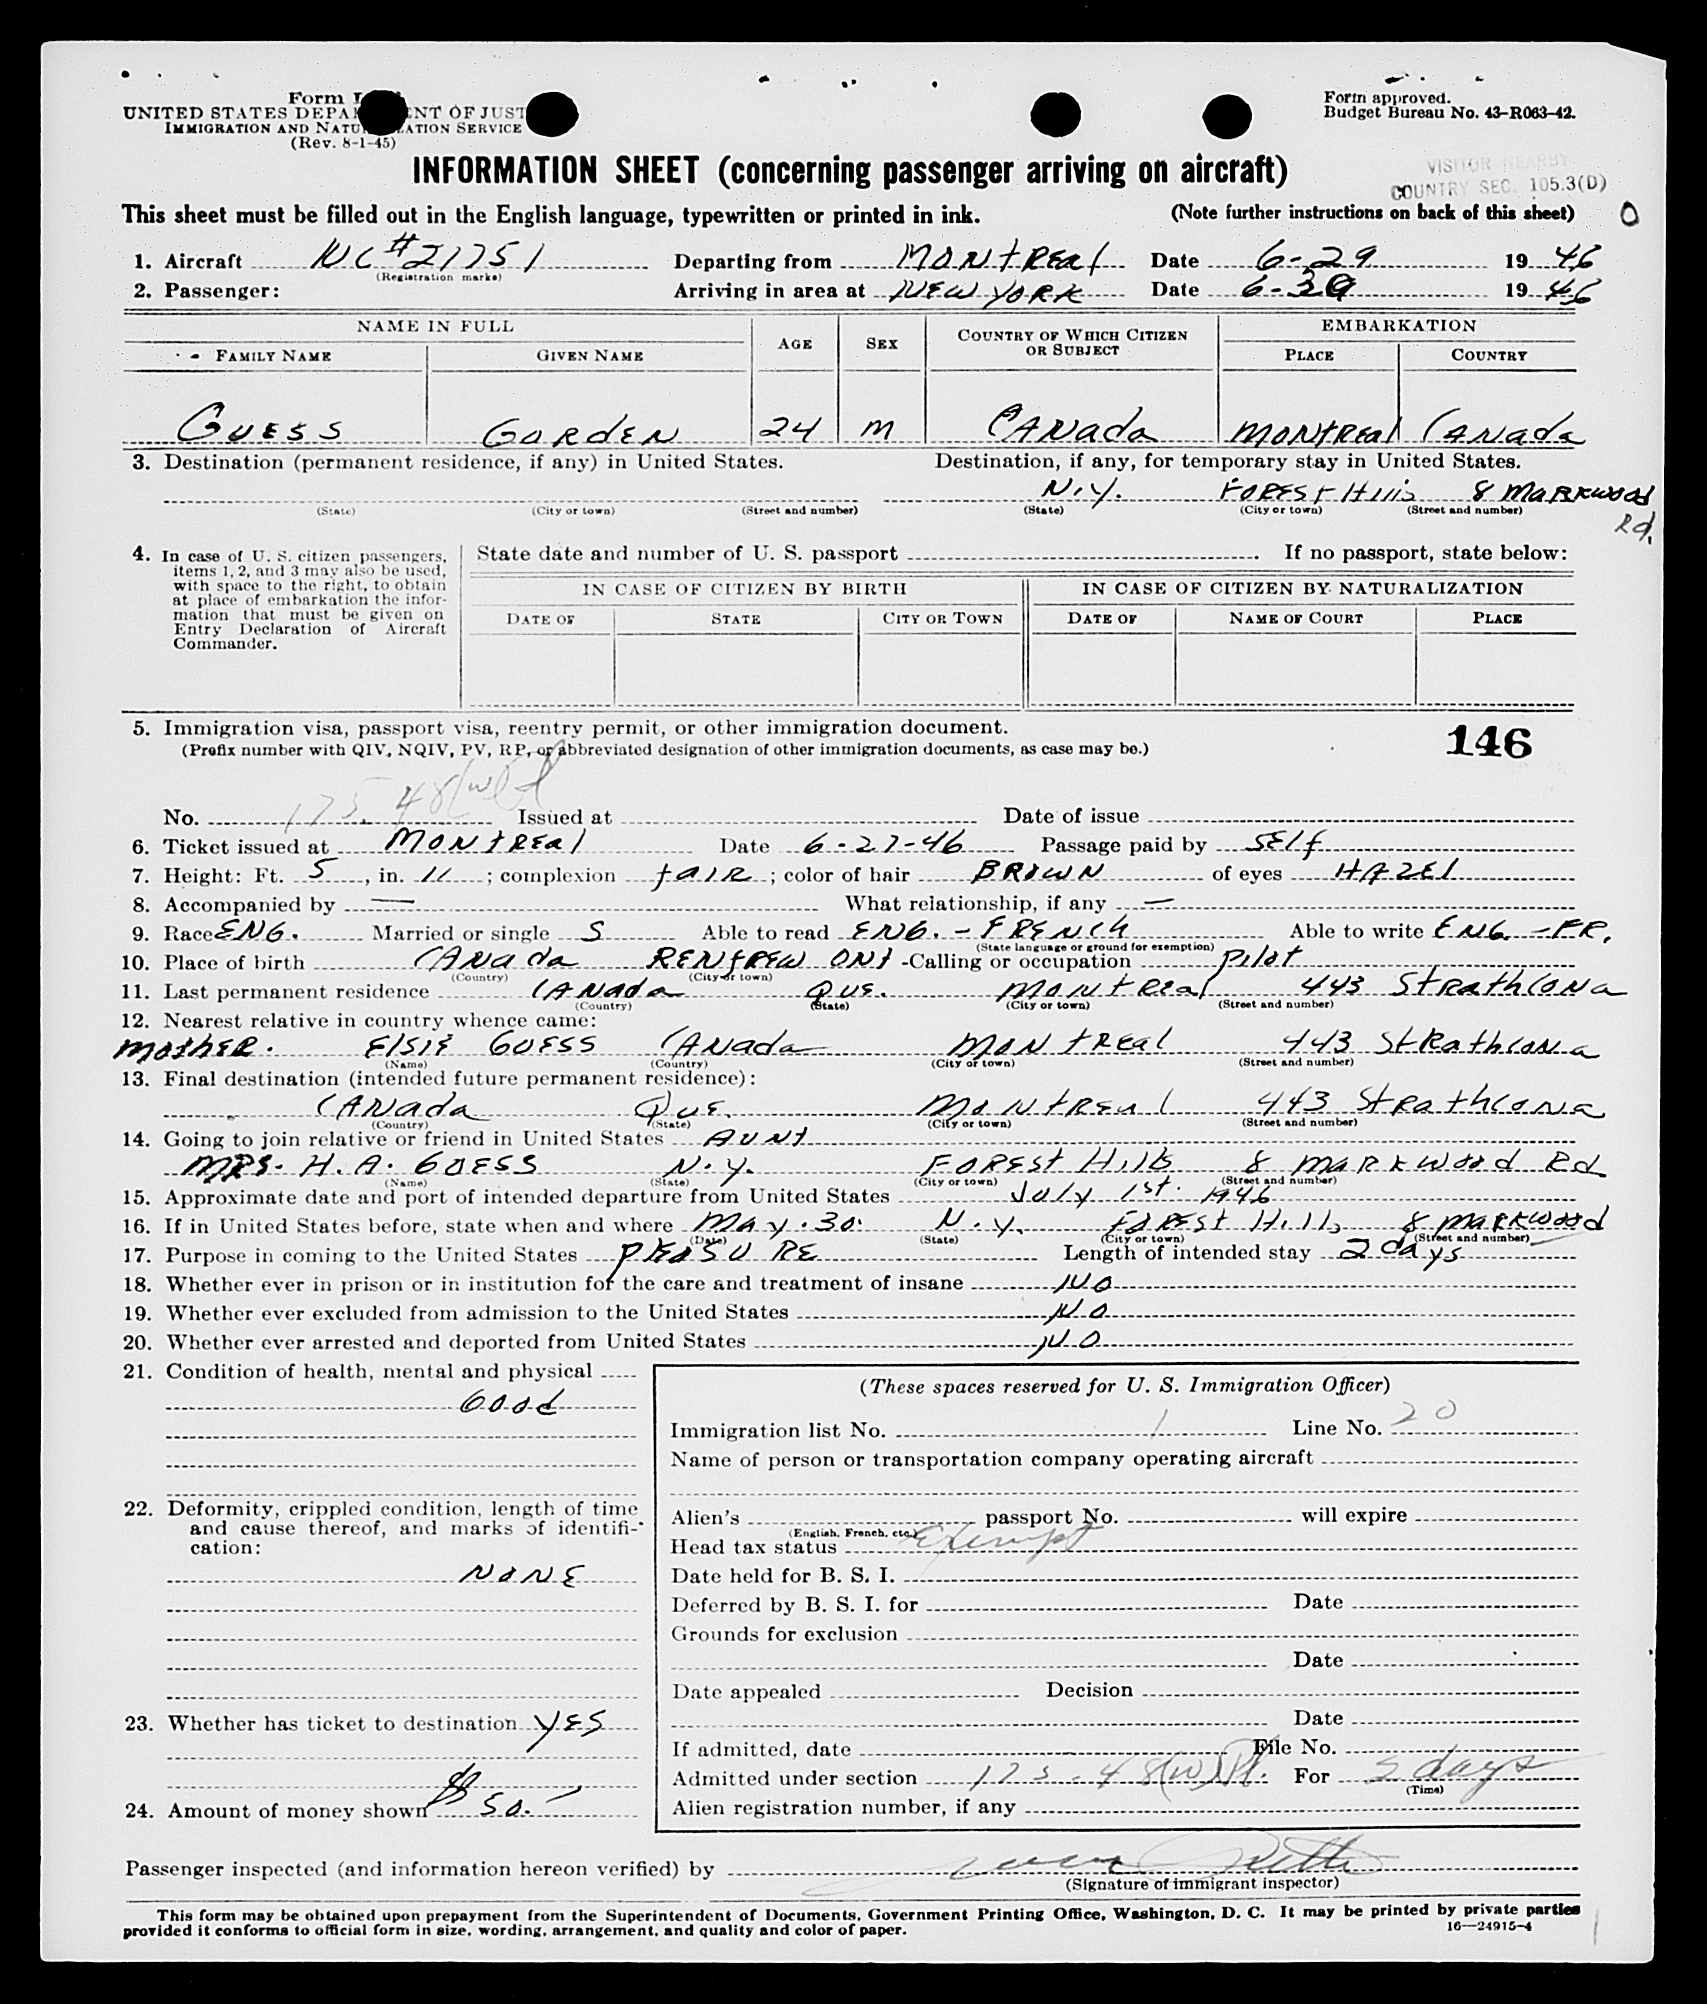 Form
UNITED STATES DEPARTMENT OF JUSTICE
IMMIGRATION AND NATURALIZATION SERVICE
(Rev. 8-1-45)
Form approved.
Budget Bureau No. 43-R063-42.
INFORMATION SHEET (concerning passenger arriving on aircraft)
VISITOR NEARBY
COUNTRY SEC. 105.3(D)
This sheet must be filled out in the English language, typewritten or printed in ink. (Note further instructions on back of this sheet) O
1. Aircraft NC #21751 Departing from MONTREAL Date 6-29 1946
(Registration marks)
2. Passenger: Arriving in area at NEW YORK Date 6-29 1946
NAME IN FULL AGE SEX COUNTRY OF WHICH CITIZEN OR SUBJECT EMBARKATION
FAMILY NAME GIVEN NAME PLACE COUNTRY
GUESS GORDEN 24 M CANADA MONTREAL CANADA
3. Destination (permanent residence, if any) in United States. Destination, if any, for temporary stay in United States.
N.Y. FOREST Hills 8 MARKWOOD Rd.
(State) (City or town) (Street and number) (State) (City or town) (Street and number)
4. In case of U. S. citizen passengers, items 1, 2, and 3 may also be used, with space to the right, to obtain at place of embarkation the information that must be given on Entry Declaration of Aircraft Commander.
State date and number of U. S. passport If no passport, state below:
IN CASE OF CITIZEN BY BIRTH IN CASE OF CITIZEN BY NATURALIZATION
DATE OF STATE CITY OR TOWN DATE OF NAME OF COURT PLACE
5. Immigration visa, passport visa, reentry permit, or other immigration document.
(Prefix number with QIV, NQIV, PV, RP, or abbreviated designation of other immigration documents, as case may be.)
146
No. 175.48(w) Issued at Date of issue
6. Ticket issued at MONTREAL Date 6-27-46 Passage paid by SELF
7. Height: Ft. 5, in. 11; complexion FAIR; color of hair BROWN of eyes HAZEL
8. Accompanied by — What relationship, if any —
9. Race ENG. Married or single S Able to read ENG. - FRENCH Able to write ENG. - FR.
(State language or ground for exemption)
10. Place of birth CANADA RENFREW ONT - Calling or occupation Pilot
(Country) (City or town)
11. Last permanent residence CANADA QUE. MONTREAL 443 STRATHCONA
(Country) (State) (City or town) (Street and number)
12. Nearest relative in country whence came:
MOTHER. ELSIE GUESS CANADA MONTREAL 443 STRATHCONA
(Name) (Country) (City or town) (Street and number)
13. Final destination (intended future permanent residence):
CANADA QUE. MONTREAL 443 STRATHCONA
(Country) (State) (City or town) (Street and number)
14. Going to join relative or friend in United States AUNT
MRS. H. A. GUESS N.Y. FOREST Hills 8 MARKWOOD Rd
(Name) (State) (City or town) (Street and number)
15. Approximate date and port of intended departure from United States July 1st. 1946
16. If in United States before, state when and where MAY. 30. N.Y. FOREST Hills 8 MARKWOOD
(Date) (State) (City or town) (Street and number)
17. Purpose in coming to the United States PLEASURE Length of intended stay 2 days
18. Whether ever in prison or in institution for the care and treatment of insane NO
19. Whether ever excluded from admission to the United States NO
20. Whether ever arrested and deported from United States NO
21. Condition of health, mental and physical
Good
22. Deformity, crippled condition, length of time and cause thereof, and marks of identification:
NONE
23. Whether has ticket to destination YES
24. Amount of money shown $50.—
(These spaces reserved for U. S. Immigration Officer)
Immigration list No. 1 Line No. 20
Name of person or transportation company operating aircraft
Alien's passport No. will expire
(English, French, etc.)
Head tax status Exempt
Date held for B. S. I.
Deferred by B. S. I. for Date
Grounds for exclusion
Date
Date appealed Decision
Date
If admitted, date File No.
Admitted under section 175.48(w) For 2 days
(Time)
Alien registration number, if any
Passenger inspected (and information hereon verified) by
(Signature of immigrant inspector)
This form may be obtained upon prepayment from the Superintendent of Documents, Government Printing Office, Washington, D. C. It may be printed by private parties
provided it conforms to official form in size, wording, arrangement, and quality and color of paper. 16—24915-4